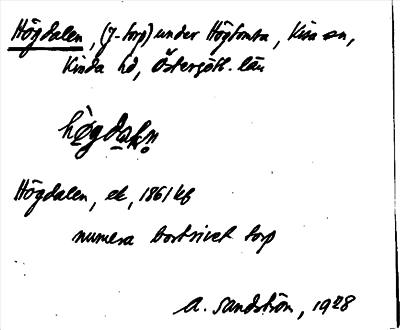 Högdalen, (j-torp) under Högtomta, Kisa sn,
Kinda hd, Östergötl. län
hògdalņ
Högdalen, ek, 1861 kb
numera bortrivet torp
A. Sandström, 1928